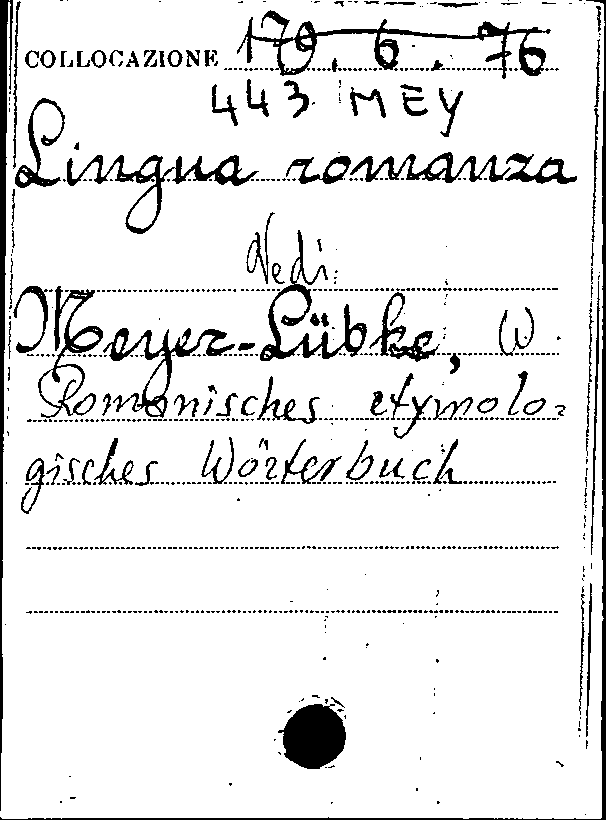 COLLOCAZIONE 179.6.76
443 MEY
Lingua romanza
Vedi:
Meyer-Lübke, W.
Romanisches etymolo=
gisches Wörterbuch